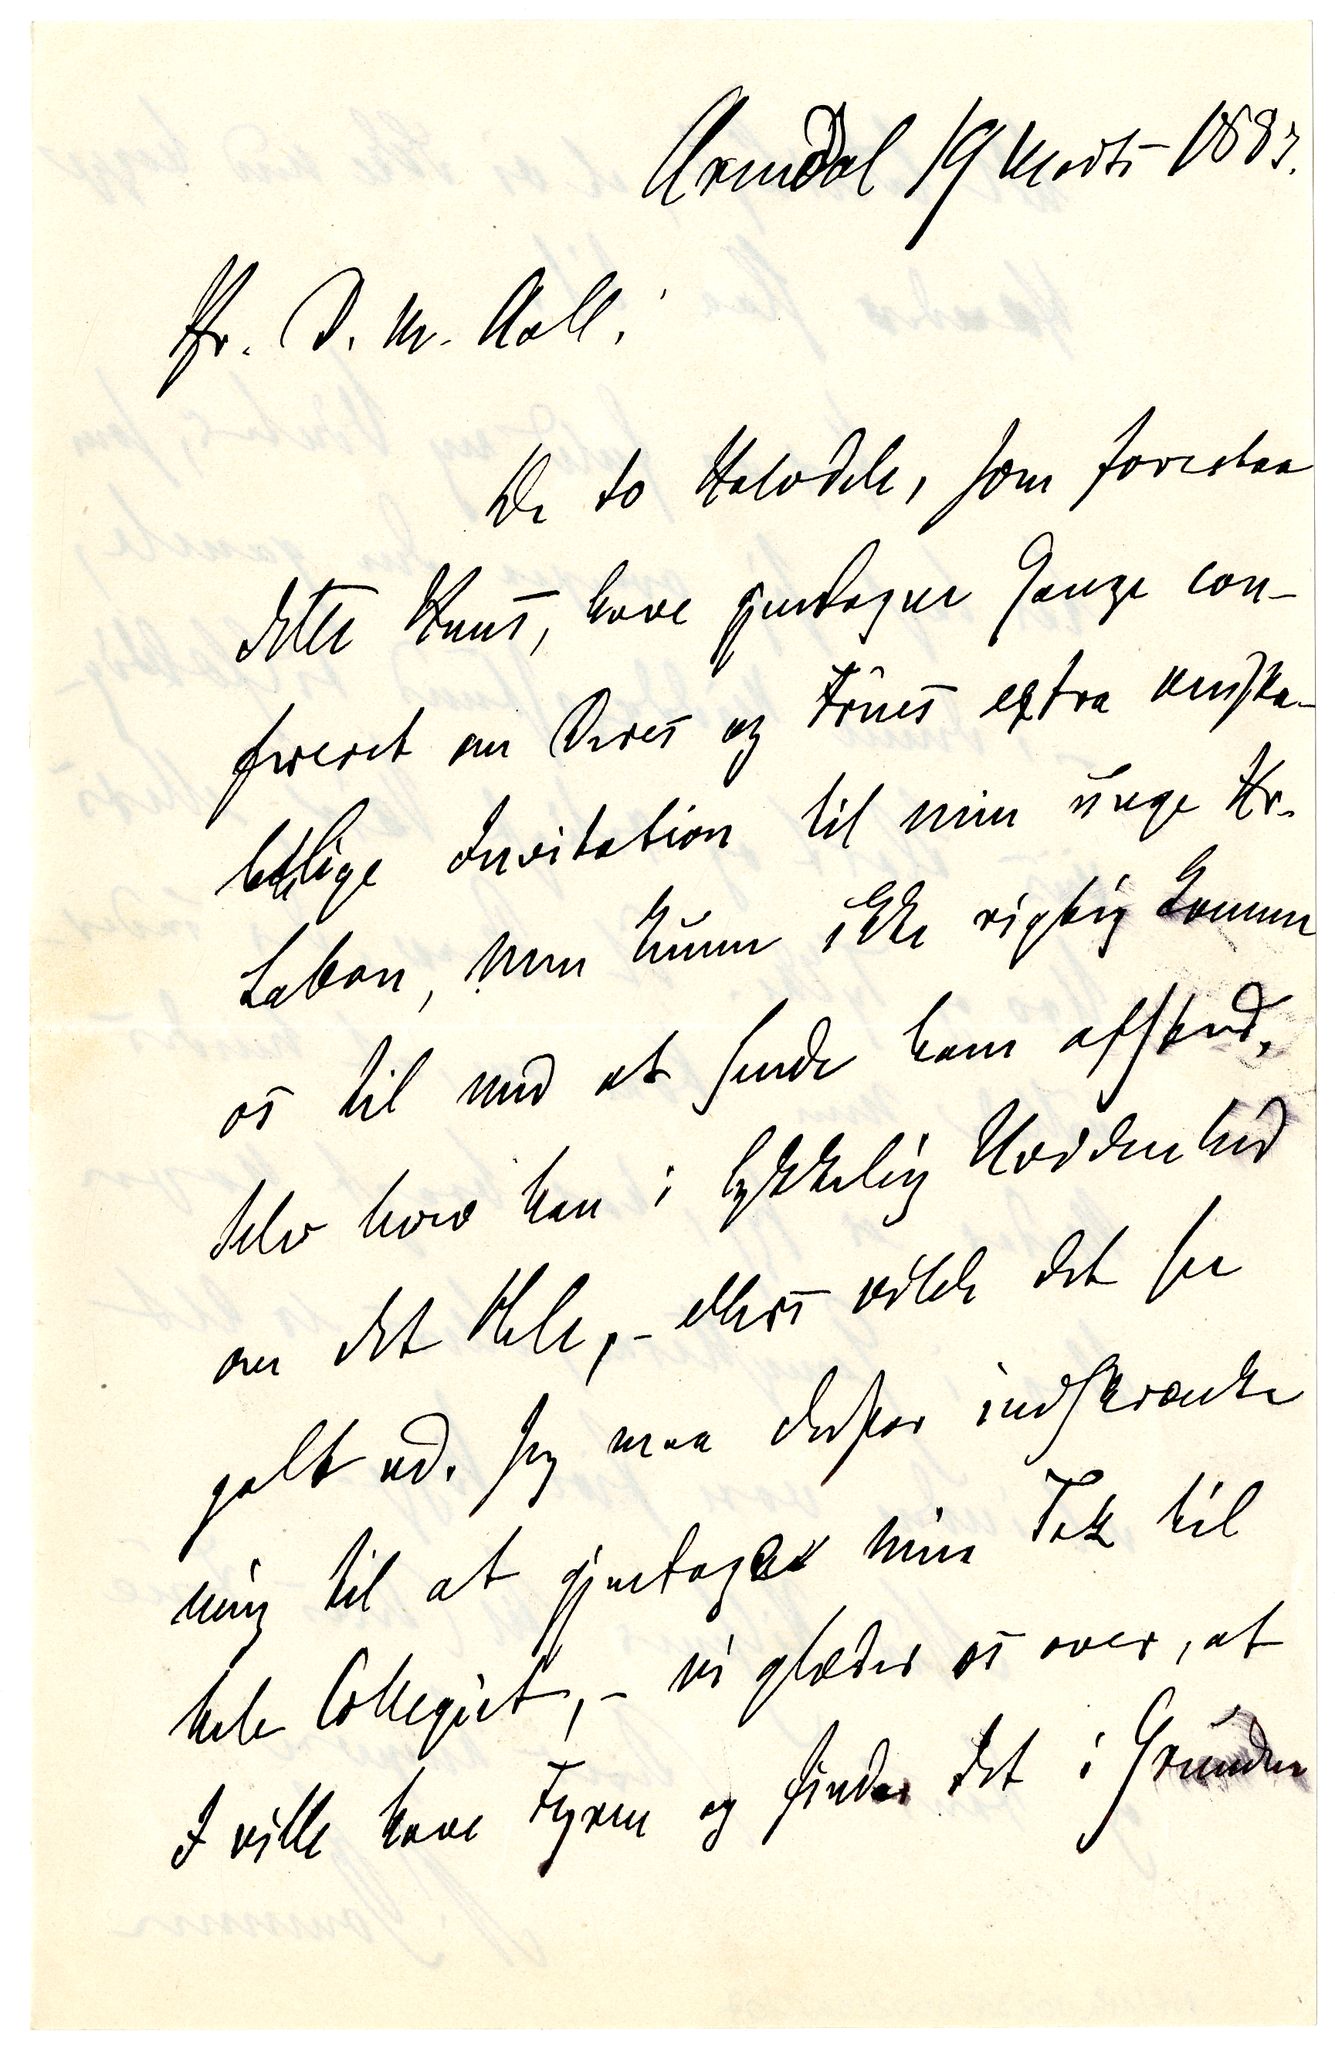 Arendal 19 Marts 1883.
Hr. D. M. Aall!
De to Halvdele, som forestaa
dette Huus, have gjentagne Gange con-
fereret om Deres og Frues extra venska-
belige Invitation til min unge Hr.
Laban, men kunne ikke rigtig komme
os til med at sende ham afsted,
selv svæv han i lykkelig Uvidenhed
om det Hele, - ellers vilde det see
galt ud. Jeg maa derfor indskrænke
mig til at gjentage min Tak til
hele Collegiet, - vi glæder os over, at
I ville have Fyren og finder det i Grunden